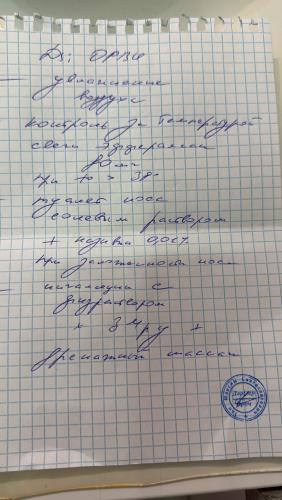 Ds: ОРВИ
увлажнение
воздуха
контроль за температурой
свечи эффералган
при t° > 38°
туалет носа
солевым раствором
+ називин 0,01%
при заложенности носа
ингаляции с
физраствором
дренажный массаж